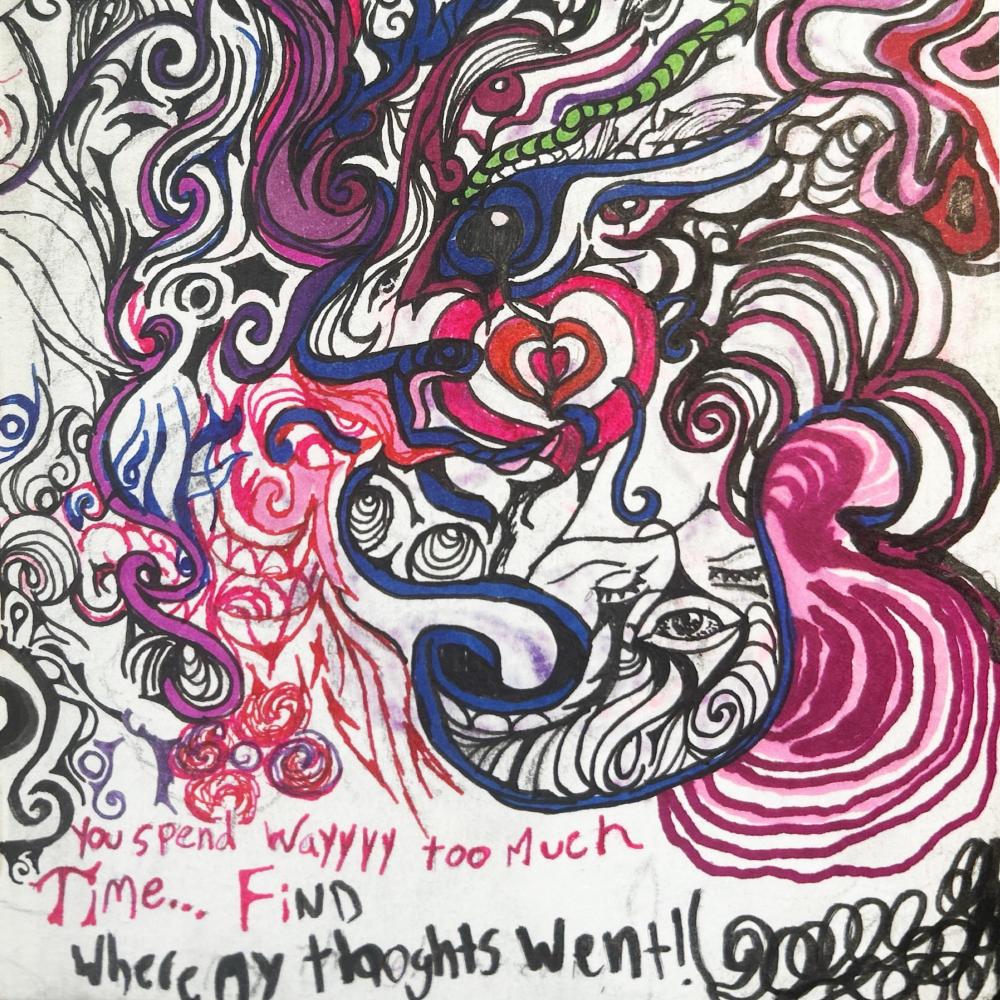 You spend Wayyyy too Much
Time... FiND
where my thoghts went!!